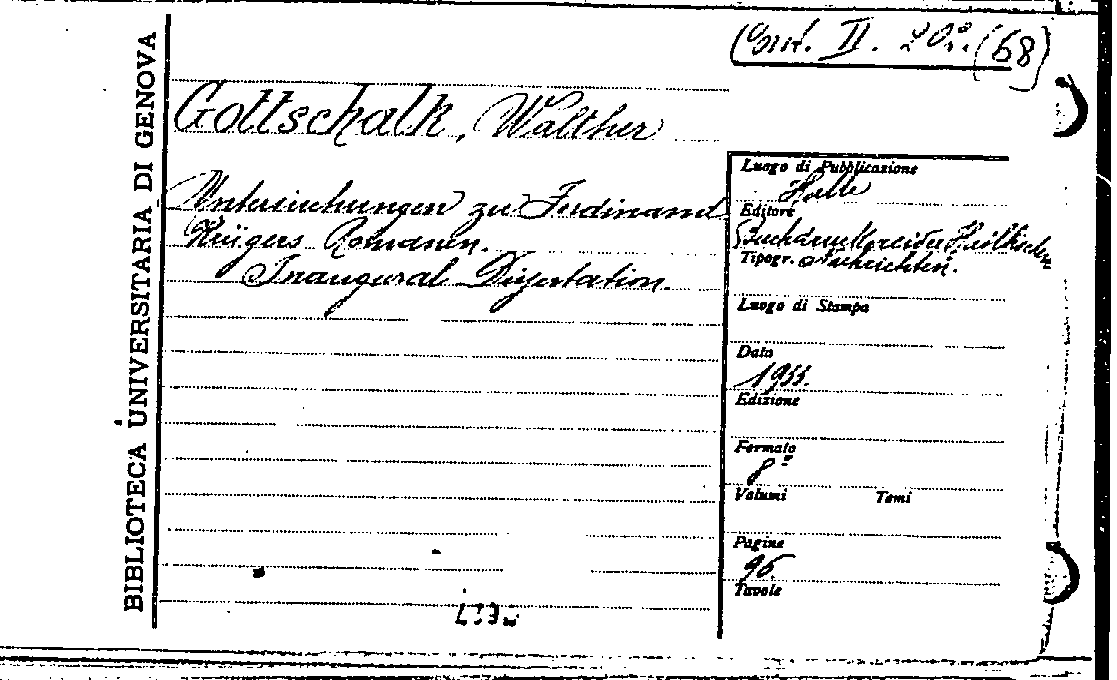 BIBLIOTECA UNIVERSITARIA DI GENOVA
II. (68)
Gottschalk, Walther
Untersuchungen zu Ferdinand
Krügers Romanen.
Inaugural Dissertation.
Luogo di Pubblicazione
Halle
Editore
Buchdruckerei der Hallischen
Tipogr. Nachrichten.
Luogo di Stampa
Data
Edizione
Formato
8º
Volumi Tomi
Pagine
96
Tavole